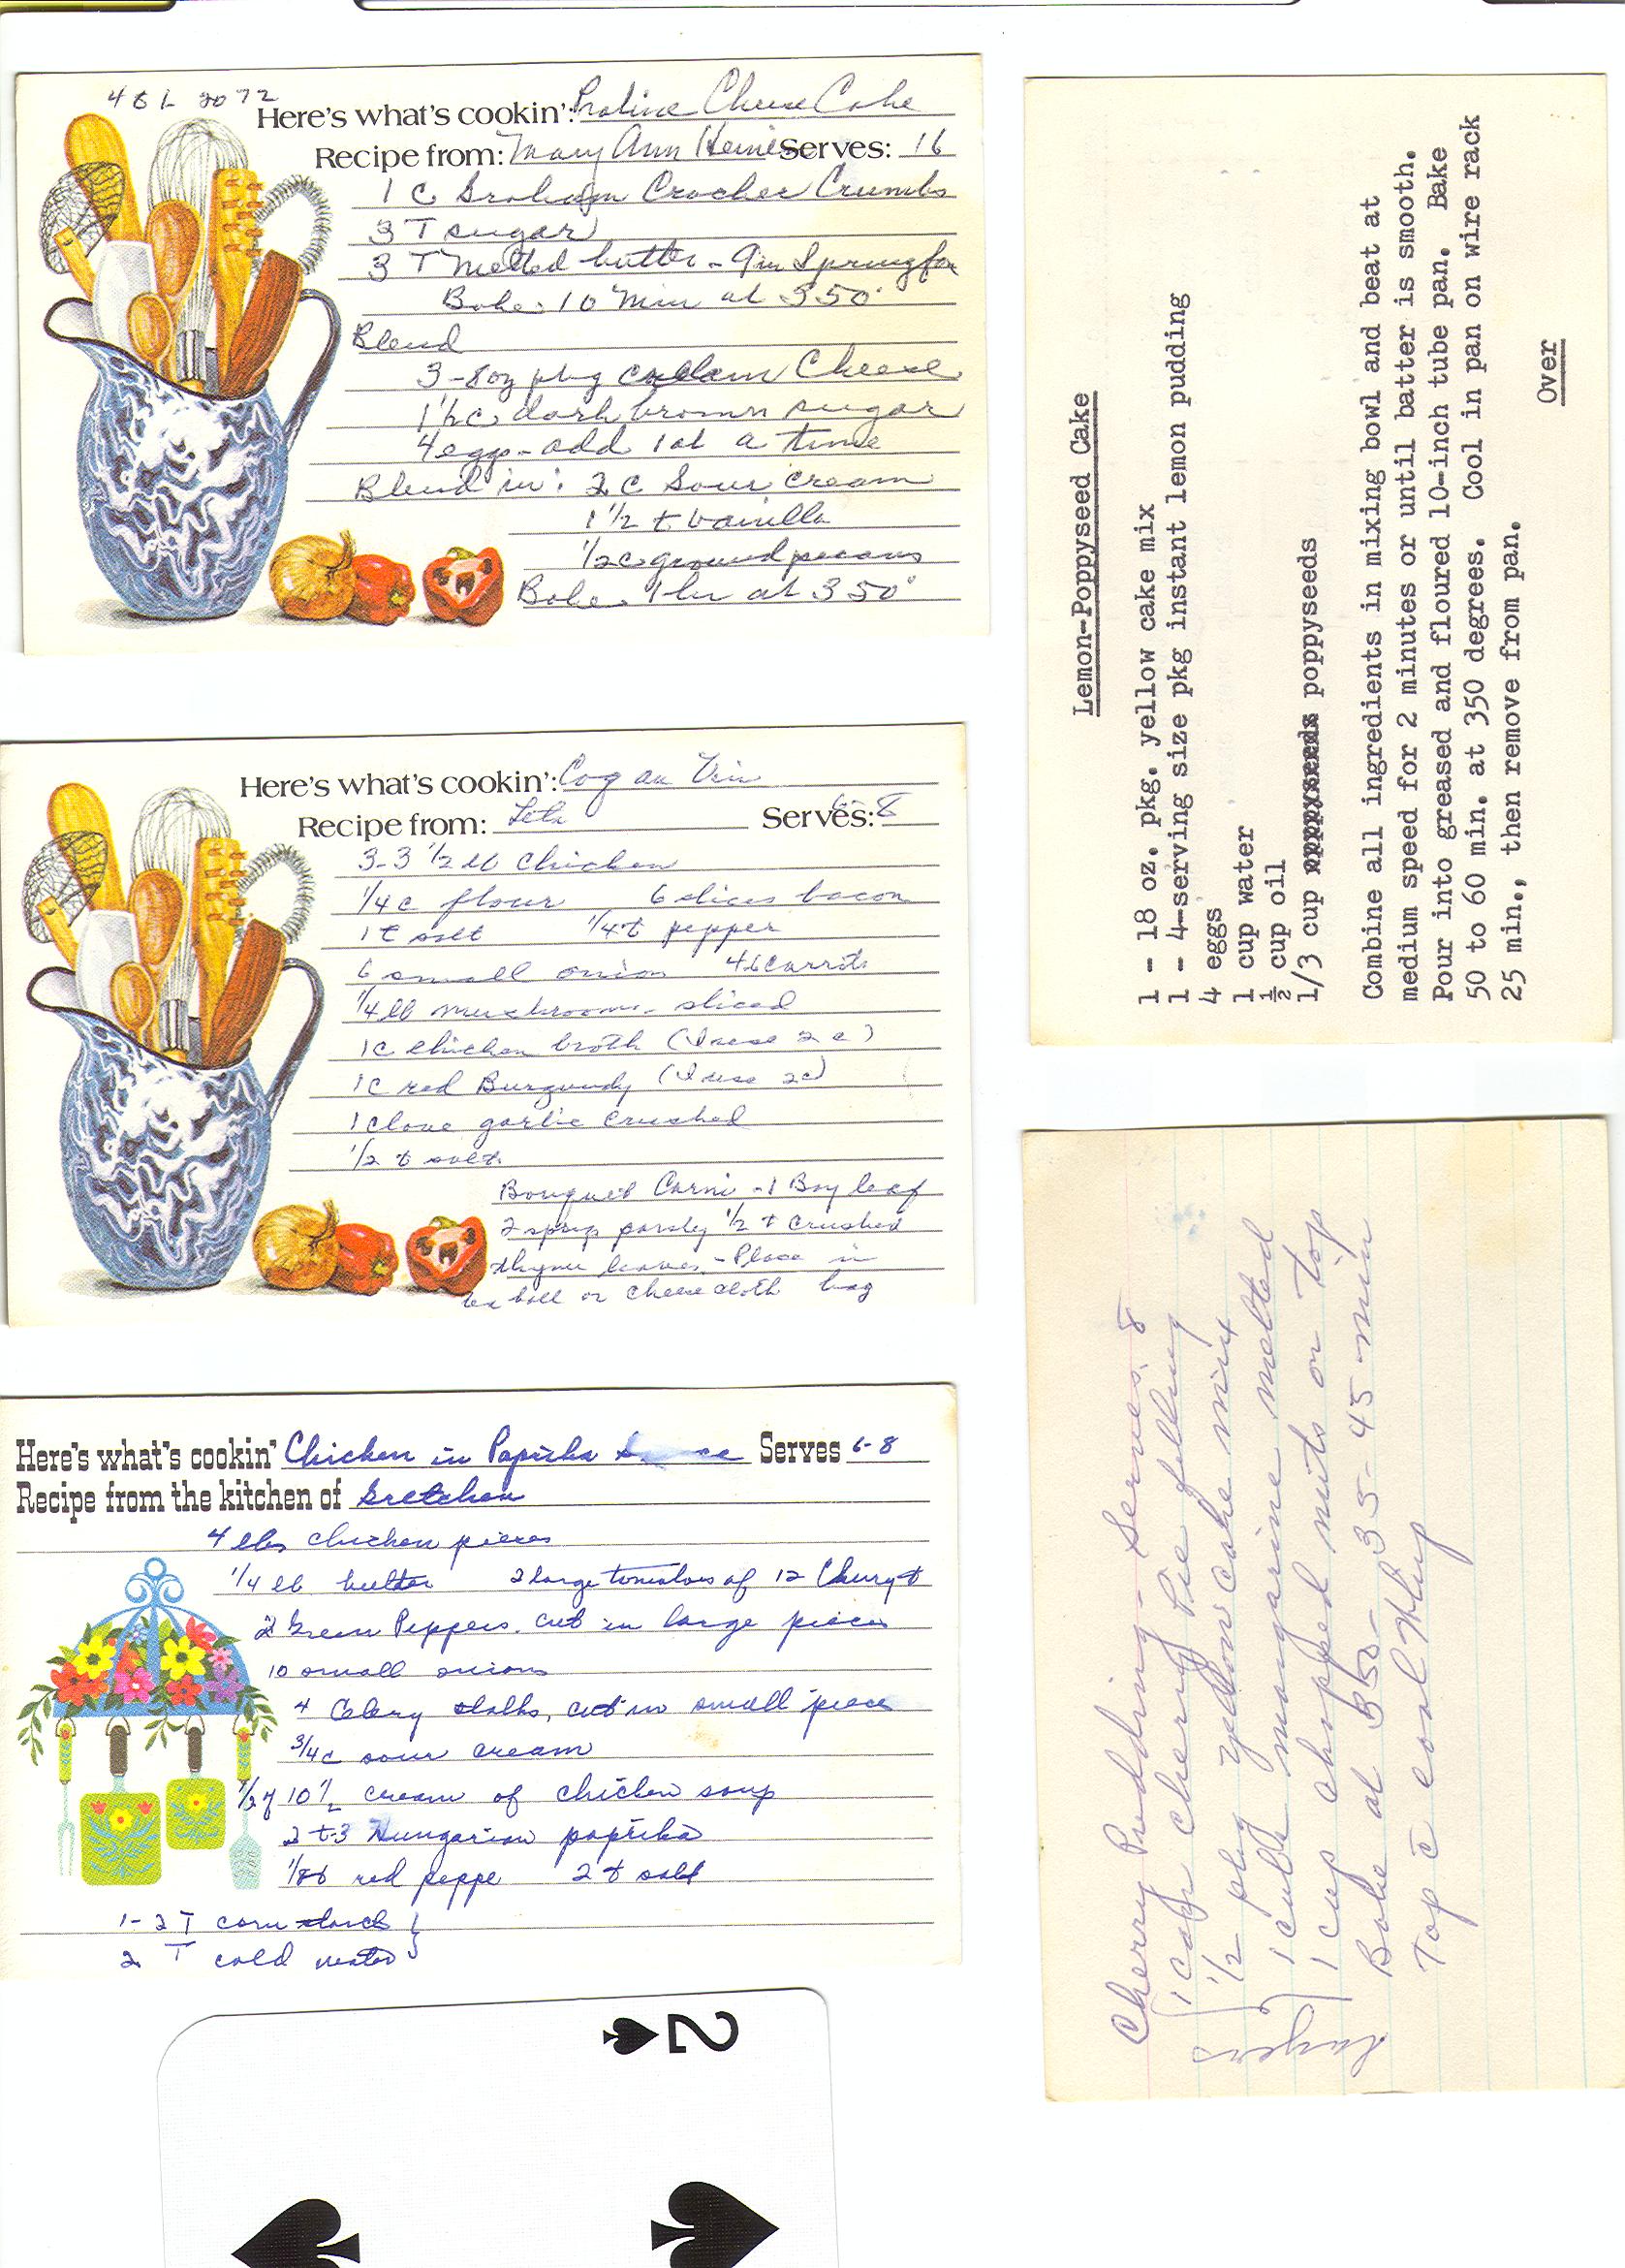 Here's what's cookin': Praline Cheese Cake
Recipe from: Mary Ann Serves: 16
1 C Graham Cracker Crumbs
3 T sugar
3 T Melted butter - 9in Springfor
Bake 10 Min at 350°
Blend
3 - 8oz pkg cream Cheese
1½ c dark brown sugar
4 eggs - add 1 at a time
Blend in: 2 C Sour cream
1 1/2 t vanilla
1/2 c ground pecans
Bake 1 hr at 350°
Here's what's cookin': Coq au Vin
Recipe from: Serves: 6-8
3-3 1/2 lb Chicken
1/4 c flour 6 slices bacon
1 t salt 1/4 t pepper
6 small onion 46 Carrots
1/4 lb mushrooms - sliced
1 c chicken broth (I use 2 c)
1 c red Burgundy (I use 2c)
1 clove garlic crushed
1/2 t salt
Bouquet Garni - 1 Bay leaf
2 sprigs parsley 1/2 t crushed
thyme leaves - Place in
tea ball or cheese cloth bag
Here's what's cookin' Chicken in Paprika Sauce Serves 6-8
Recipe from the kitchen of Gretchen
4 lbs chicken pieces
1/4 lb butter 2 large tomatoes of 12 Cherry t
2 Green Peppers. cut in large pieces
10 small onions
4 Celery stalks, cut in small pieces
3/4 c sour cream
1/2 of 10 1/2 cream of chicken soup
2 t-3 Hungarian paprika
1/8 t red peppe 2 t salt
1-2 T corn starch }
2 T cold water
2
Lemon-Poppyseed Cake
1 - 18 oz. pkg. yellow cake mix
1 - 4-serving size pkg instant lemon pudding
4 eggs
1 cup water
½ cup oil
1/3 cup poppyseeds
Combine all ingredients in mixing bowl and beat at
medium speed for 2 minutes or until batter is smooth.
Pour into greased and floured 10-inch tube pan. Bake
50 to 60 min. at 350 degrees. Cool in pan on wire rack
25 min., then remove from pan.
Over
Cherry Pudding - Serves 8
1 can cherry Pie filling
1/2 pkg yellow cake mix
1 cube margarine melted
1 cup chopped nuts on top
Layers
Bake at 350 - 35-45 min
Top c̄ cool Whip